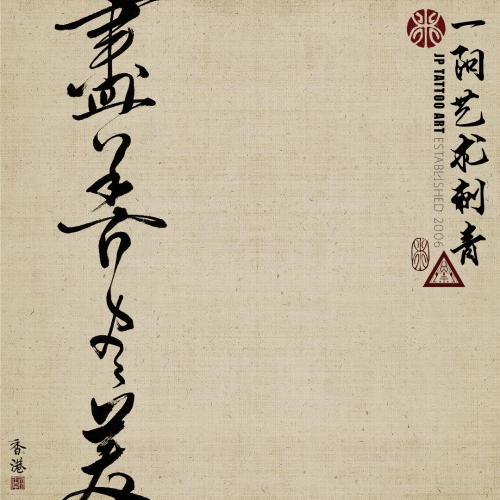 一阳艺术刺青
JP TATTOO ART ESTABLISHED 2006
盡善尽美
香港